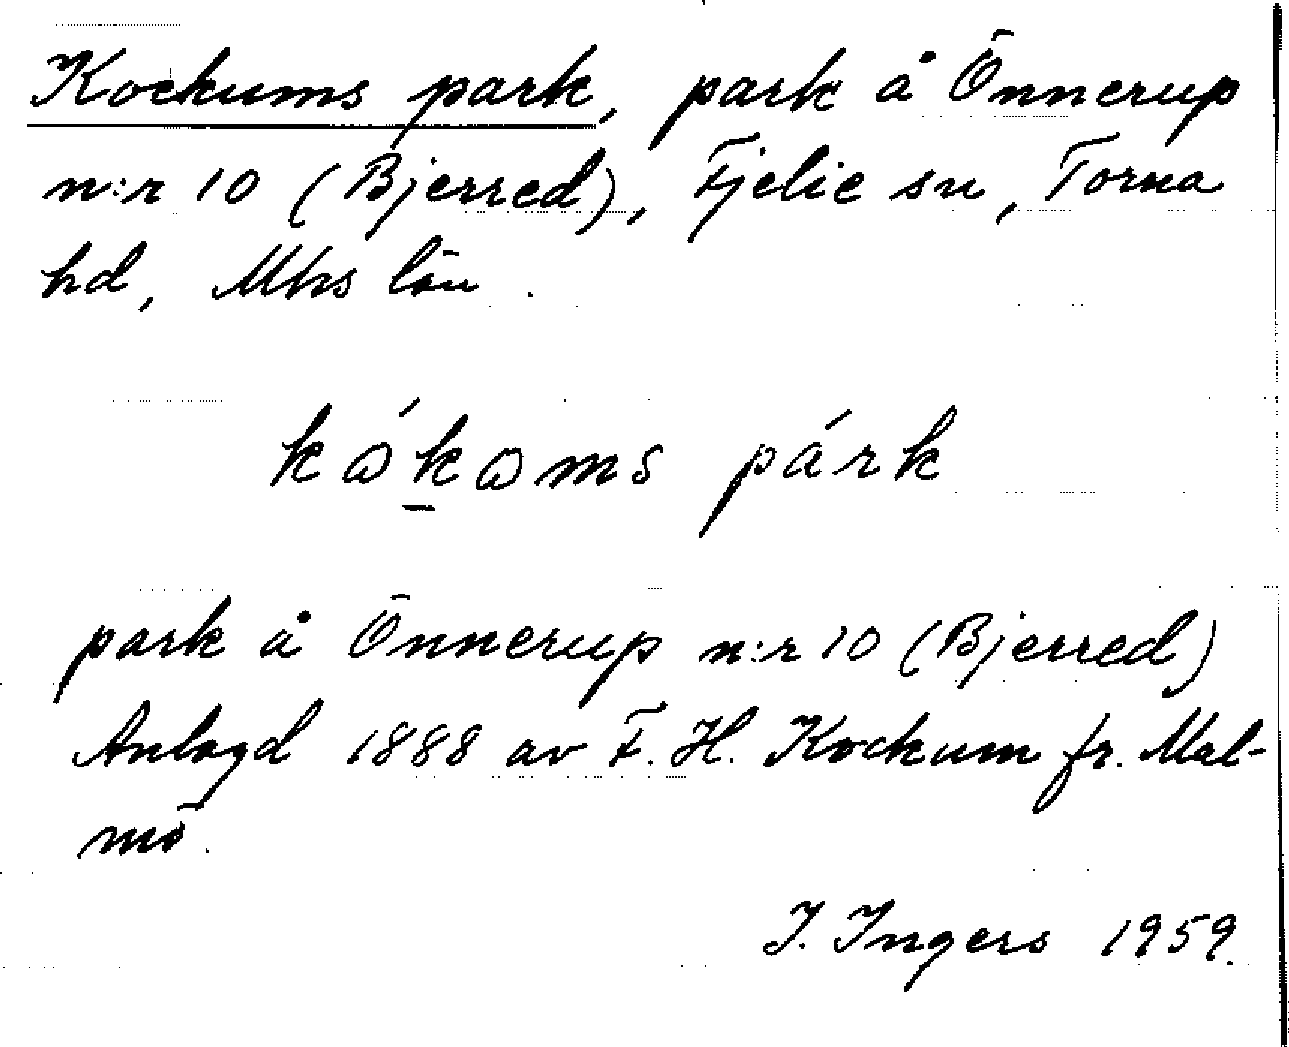 Kockums park, park å Önnerup
n:r 10 (Bjerred), Fjelie sn, Torna
hd, Mhs län.
kɷ́k̲ɷms párk
park å Önnerup n:r 10 (Bjerred)
Anlagd 1888 av F. H. Kockum fr. Mal-
mö.
I. Ingers 1959.